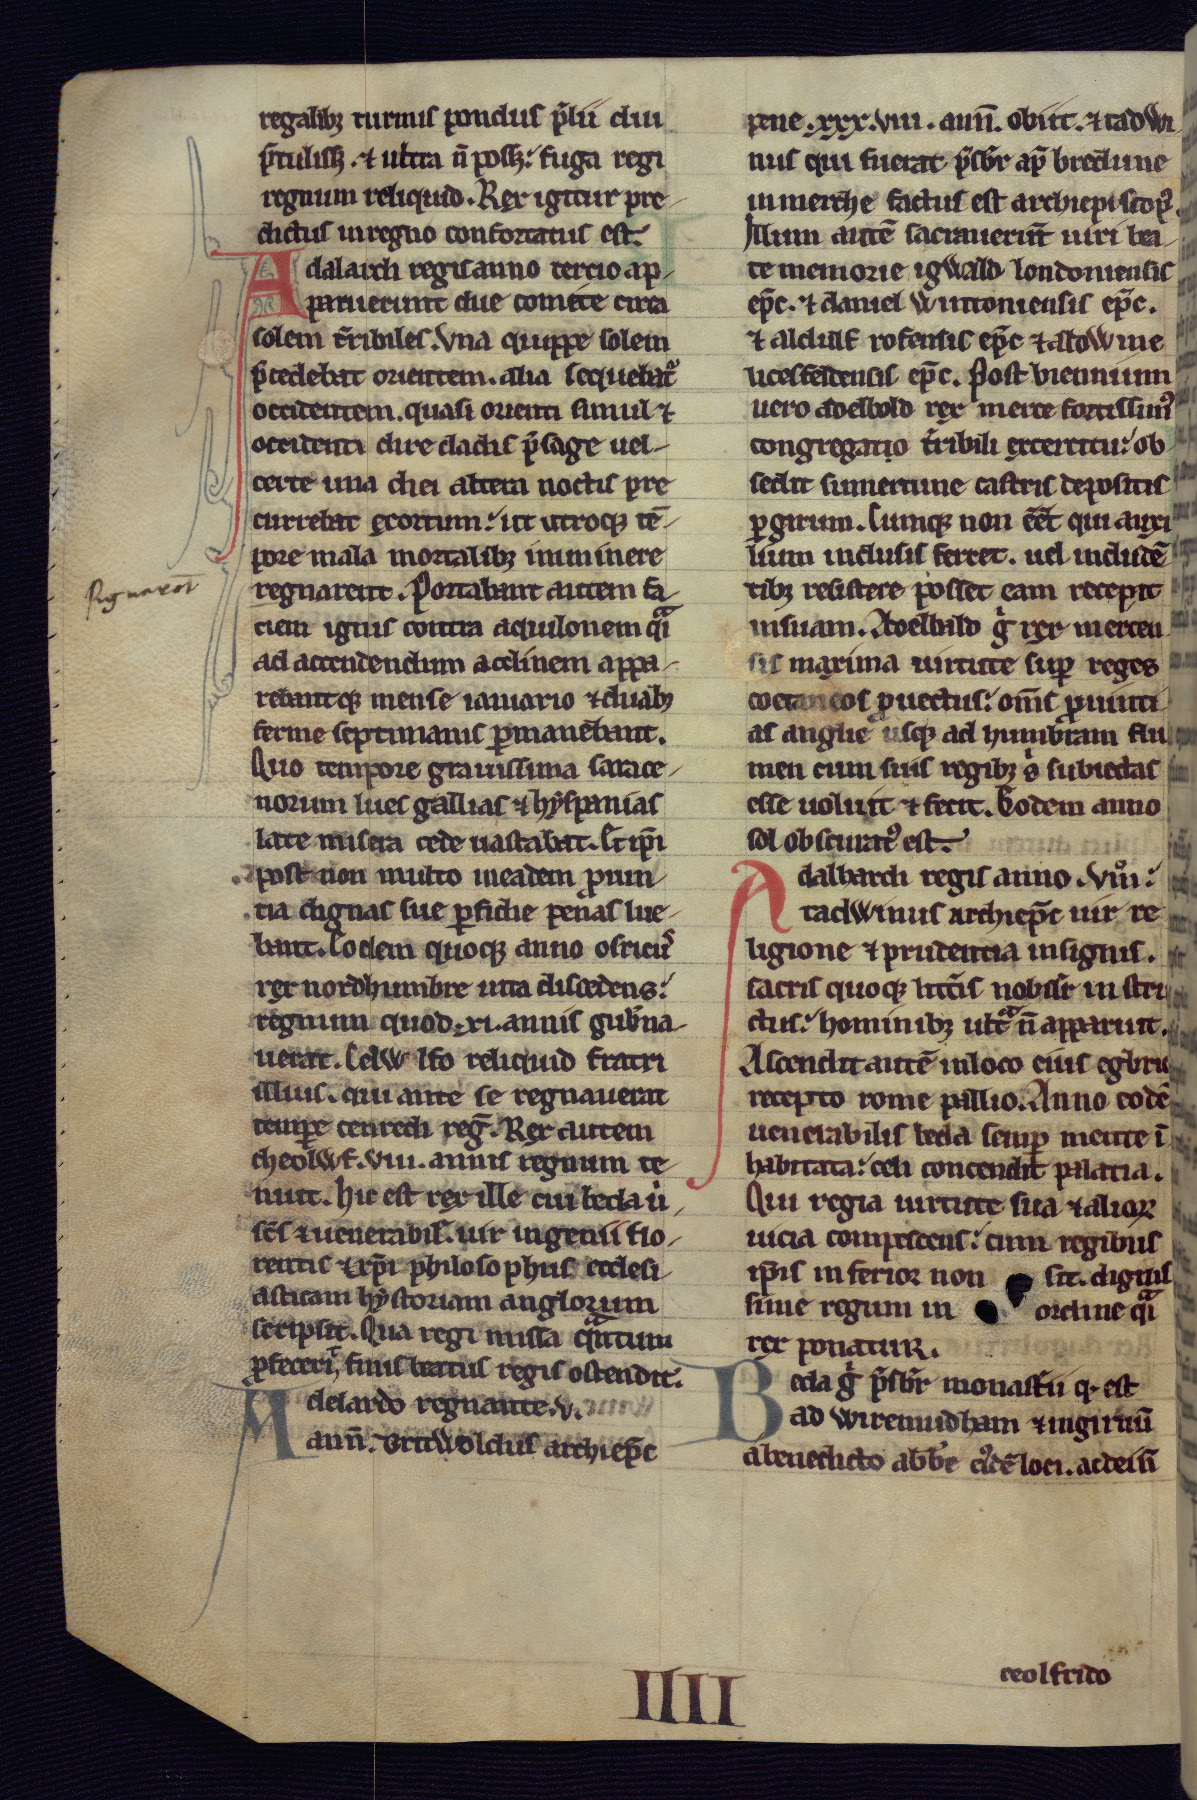 regalibꝫ turmis pondus p̄lii diu
p̄tulissꝫ. ⁊ ultra n̄ possꝫ: fuga regi
regnum reliquid. Rex igitur pre-
dictus in regno confortatus est.
Adalarch regis anno tercio ap-
paruerunt due comete circa
solem t̄ribiles. Vna quippe solem
p̄cedebat orientem. alia sequebat᷑
occidentem. quasi orienti simul ⁊
occidenti dire cladis p̄sage uel-
certe una diei altera noctis pre
currebat exortum: ut utroqꝫ tē-
pore mala mortalibꝫ imminere
regnarent. Portabant autem fa-
ciem ignis contra aquilonem qͣi
ad accendendum acclinem appa-
rebantqꝫ mense ianuario ⁊ duabꝫ
ferme septimanis ꝑmanebant.
Quo tempore grauissima sarace-
norum lues gallias ⁊ hyspanias
late misera cede uastabat. Et ip̄i
post non multo in eadem prouin-
tia dignas sue ꝑfidie penas lue-
bant. Eodem quoqꝫ anno osricus
rex nordhumbre uita discedens:
regnum quod .xi. annis gub̄na-
uerat. Celwlfo reliquid fratri
illius. qui ante se regnauerat
tempꝛe cenredi reḡ. Rex autem
cheolwf. viii. annis regnum te-
nuit. Hic est rex ille cui beda ū-
sc̄s ⁊ uenerabil. uir ingenii flo-
rentis ⁊ xp̄i philosophus ecclesi-
asticam hystoriam anglorum
scripsit. Qua regi missa qͣntum
ꝓfecerit finis beatus regis ostendit.
Adelardo regnante .v.
ann̄. Britwoldus archiep̄c
Regnarent
pene .xxx.viii. ann̄. obiit. ⁊ tadwi-
nus qui fuerat p̄sbr̄ ap̄ bredune
in merche factus est archiepiscopꝰ.
Illum autē sacrauerūt uiri bea-
te memorie igwald londoniensis
ep̄c. ⁊ daniel wintoniensis ep̄c.
⁊ aldulf rofensis ep̄c ⁊ aldwine
licesfeldensis ep̄c. Post biennium
uero adelbold rex merce fortissimꝰ
congregatio t̄ribili exercitu: ob
sedit sumertune castris depositis
ꝑ girum. Cumqꝫ non eēt qui auxi
lium inclusis ferret. uel includē
tibꝫ resistere posset eam recepit
in suam. Adelbald g̊ rex mercen-
sis maxima uirtute suꝑ reges
coetaneos ꝓuectus: om̄s ꝓuinti
as anglie usqꝫ ad humbram flu
men cum suis regibꝫ s̄ subiectas
esse uoluit ⁊ fecit. Eodem anno
sol obscuratꝰ est.
Adalhardi regis anno .viii:
tadwinus archiep̄c uir re
ligione ⁊ prudentia insignis.
sacris quoqꝫ litt̄is nobilit̄ in stri
ctus: hominibꝫ ult̄ͣ n̄ apparuit.
Ascendit autē in loco eius egbric
recepto rome pallio. Anno eodē
uenerabilis beda semꝑ mente ī
habitata: celi concendit palacia.
Qui regia uirtute sua ⁊ alioꝝ
uicia compescens: cum regibus
ip̄is inferior non sit. dignis
sime regum in ordine qͣi
rex ponatur.
Beda g̊ p̄sbr̄ monast̄ii q̄ est
ad wiremudham ⁊ ingiruū
a benedicto abbe eiꝰdē loci. ac deīn
ceolfrido
IIII